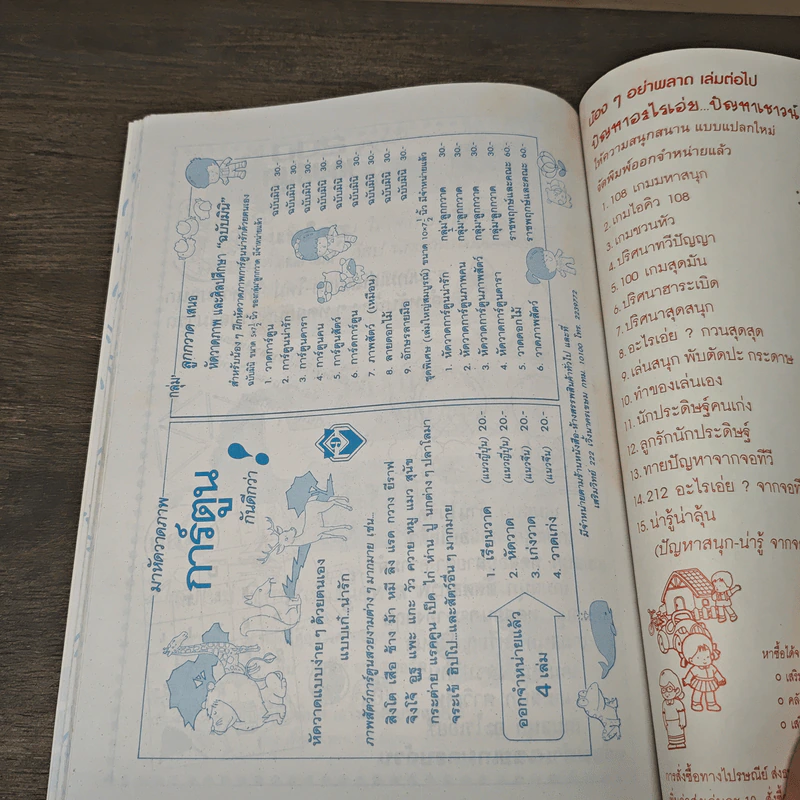 มาหัดวาดภาพ
การ์ตูน
กันดีกว่า !
หัดวาดแบบง่าย ๆ ด้วยตนเอง
แบบเก๋...น่ารัก
ภาพสัตว์การ์ตูนสวยงามต่าง ๆ มากมาย เช่น...
สิงโต เสือ ช้าง ม้า หมี ลิง แรด กวาง ยีราฟ
จิงโจ้ อูฐ แพะ แกะ วัว ควาย หมู แมว สุนัข
กระต่าย แรคคูน เป็ด ไก่ ห่าน ปู นกต่าง ๆ ปลาโลมา
จระเข้ ฮิปโป...และสัตว์อื่น ๆ มากมาย
ออกจำหน่ายแล้ว
4 เล่ม
1. เรียนวาด (แนวญี่ปุ่น) 20.-
2. หัดวาด (แนวญี่ปุ่น) 20.-
3. เก่งวาด (แนวจีน) 20.-
4. วาดเก่ง (แนวจีน) 20.-
กลุ่ม
ลูกกวาด เสนอ
หัดวาดภาพ และศิลปศึกษา "ฉบับมินิ"
สำหรับน้อง ๆ ฝึกหัดวาดภาพการ์ตูนน่ารักด้วยตนเอง
ฉบับมินิ ขนาด 5×7½ นิ้ว ของกลุ่มลูกกวาด มีจำหน่ายแล้ว
1. วาดการ์ตูน ฉบับมินิ 30.-
2. การ์ตูนน่ารัก ฉบับมินิ 30.-
3. การ์ตูนดารา ฉบับมินิ 30.-
4. การ์ตูนคน ฉบับมินิ 30.-
5. การ์ตูนสัตว์ ฉบับมินิ 30.-
6. การ์ดการ์ตูน ฉบับมินิ 30.-
7. ภาพสัตว์ (เหมือน) ฉบับมินิ 30.-
8. ลายดอกไม้ ฉบับมินิ 30.-
9. อักษรลายมือ ฉบับมินิ 30.-
ชุดพิเศษ (เล่มใหญ่สมบูรณ์) ขนาด 10×7½ นิ้ว มีจำหน่ายแล้ว
1. หัดวาดการ์ตูนน่ารัก กลุ่ม"ลูกกวาด 30.-
2. หัดวาดการ์ตูนภาพคน กลุ่ม"ลูกกวาด 30.-
3. หัดวาดการ์ตูนภาพสัตว์ กลุ่ม"ลูกกวาด 30.-
4. หัดวาดการ์ตูนดารา กลุ่ม"ลูกกวาด 30.-
5. วาดดอกไม้ ราชพฤกษ์และคณะ 60.-
6. วาดภาพสัตว์ ราชพฤกษ์และคณะ 60.-
มีจำหน่ายตามร้านหนังสือ-ห้างสรรพสินค้าทั่วไป และที่
เสริมวิทย์ 222 วังบูรพา
น้อง ๆ อย่าพลาด เล่มต่อไป
ปัญหาอะไรเอ่ย...ปัญหาเชาวน์
ให้ความสนุกสนาน แบบแปลกใหม่
จัดพิมพ์ออกจำหน่ายแล้ว
1. 108 เกมมหาสนุก
2. เกมไอคิว 108
3. เกมชวนหัว
4. ปริศนาทวีปัญญา
5. 100 เกมสุดมัน
6. ปริศนาฮาระเบิด
7. ปริศนาสุดสนุก
8. อะไรเอ่ย ? กวนสุดสุด
9. เล่นสนุก พับตัดปะ กระดาษ
10. ทำของเล่นเอง
11. นักประดิษฐ์คนเก่ง
12. ลูกรักนักประดิษฐ์
13. ทายปัญหาจากจอทีวี
14. 212 อะไรเอ่ย ? จากจอที
15. น่ารู้น่าลุ้น
(ปัญหาสนุก-น่ารู้ จากจอ
หาซื้อได้จ
o เสริม
o คลั
o เส
การสั่งซื้อทางไปรษณีย์ ส่งธ